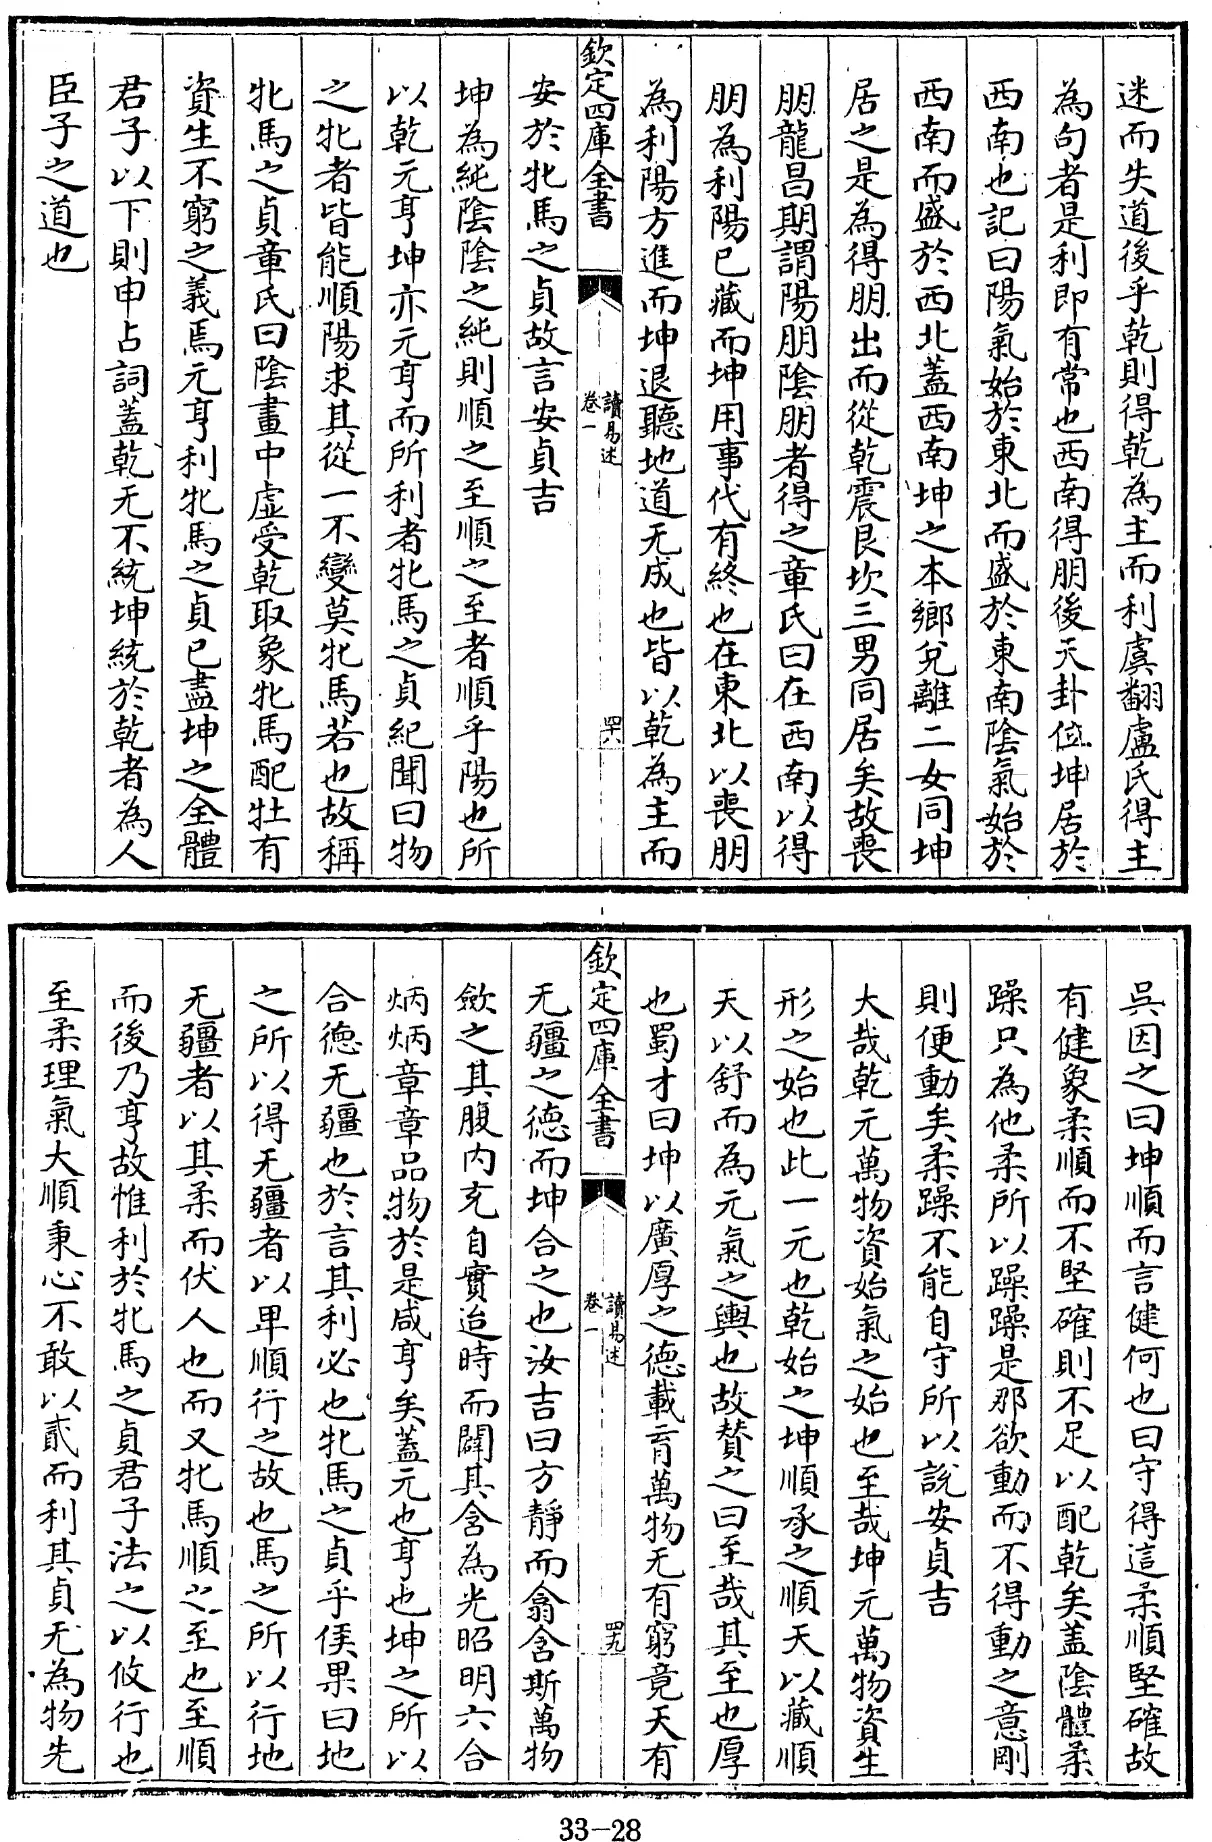 迷而失道後乎乾則得乾為主而利虞翻盧氏得主
為句者是利即有常也西南得朋後天卦位坤居於
西南也記曰陽氣始於東北而盛於東南陰氣始於
西南而盛於西北蓋西南坤之本鄉兌離二女同坤
居之是為得朋出而從乾震艮坎三男同居矣故喪
朋龍昌期謂陽朋陰朋者得之章氏曰在西南以得
朋為利陽已藏而坤用事代有終也在東北以喪朋
為利陽方進而坤退聽地道无成也皆以乾為主而
欽定四庫全書
讀易述
卷一
四十八
安於牝馬之貞故言安貞吉
坤為純陰陰之純則順之至順之至者順乎陽也所
以乾元亨坤亦元亨而所利者牝馬之貞紀聞曰物
之牝者皆能順陽求其從一不變莫牝馬若也故稱
牝馬之貞章氏曰陰畫中虛受乾取象牝馬配牡有
資生不窮之義焉元亨利牝馬之貞已盡坤之全體
君子以下則申占詞蓋乾无不統坤統於乾者為人
臣子之道也
吳因之曰坤順而言健何也曰守得這柔順堅確故
有健象柔順而不堅確則不足以配乾矣蓋陰體柔
躁只為他柔所以躁躁是那欲動而不得動之意剛
則便動矣柔躁不能自守所以說安貞吉
大哉乾元萬物資始氣之始也至哉坤元萬物資生
形之始也此一元也乾始之坤順承之順天以藏順
天以舒而為元氣之輿也故贊之曰至哉其至也厚
也蜀才曰坤以廣厚之德載育萬物无有窮竟天有
欽定四庫全書
讀易述
卷一
四十九
无疆之德而坤合之也汝吉曰方靜而翕含斯萬物
斂之其腹內充自實迨時而闢其含為光昭明六合
炳炳章章品物於是咸亨矣蓋元也亨也坤之所以
合德无疆也於言其利必也牝馬之貞乎侯果曰地
之所以得无疆者以卑順行之故也馬之所以行地
无疆者以其柔而伏人也而又牝馬順之至也至順
而後乃亨故惟利於牝馬之貞君子法之以攸行也
至柔理氣大順秉心不敢以貳而利其貞无為物先
33-28